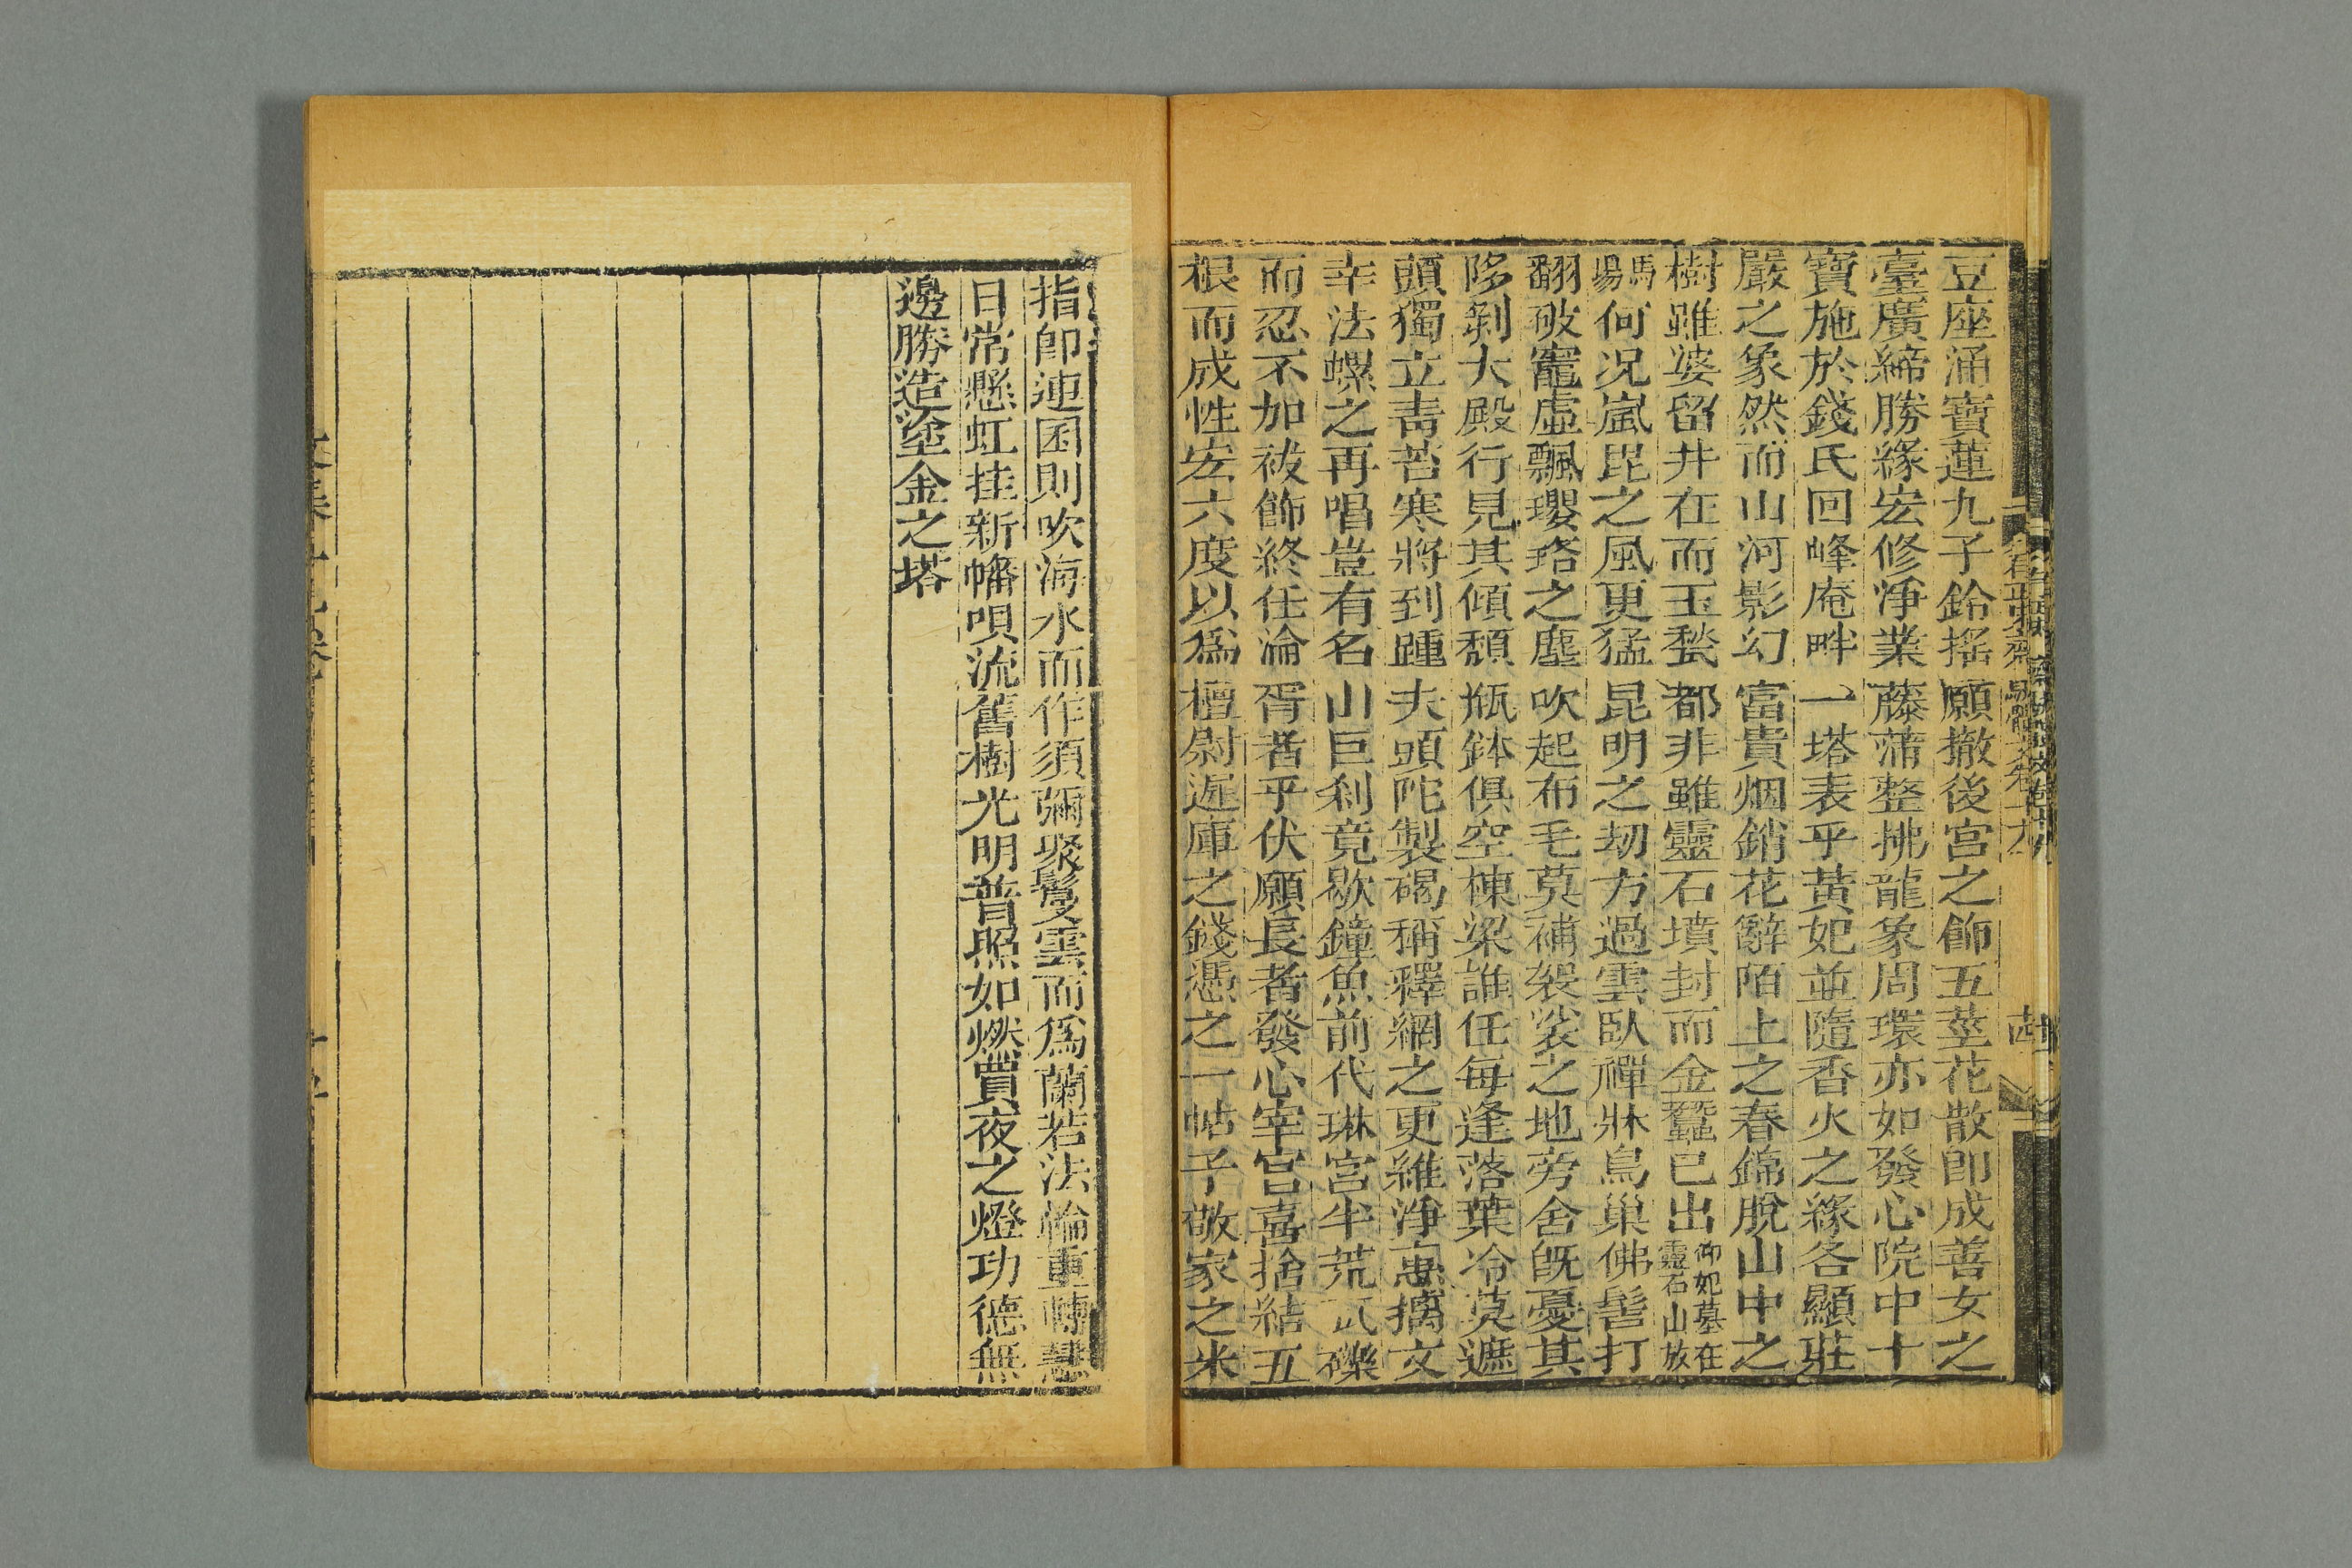 豆座涌寶蓮九子鈴搖願撤後宮之飾五莖花散卽成善女之
臺廣締勝緣宏修淨業藤蒲整拂龍象周環亦如發心院中十
寶施於錢氏回峰庵畔一塔表乎黃妃並隨香火之緣各顯莊
嚴之象然而山河影幻富貴烟銷花辭陌上之春錦脫山中之
樹雖婆留井在而玉甃都非雖靈石墳封而金蠶已出仰妃墓在靈石山放
馬場何况嵐毘之風更猛昆明之刼方過雲臥禪牀鳥巢佛髻打
翻破竈虛飄瓔珞之塵吹起布毛莫補袈裟之地旁舍旣憂其
陊剝大殿行見其傾頽瓶鉢俱空棟梁誰任每逢落葉冷莫遮
頭獨立靑苔寒將到踵夫頭陀製碣稱釋網之更維淨惠摛文
幸法螺之再唱豈有名山巨刹竟歇鐘魚前代琳宮半荒瓦礫
而忍不加祓飾終任淪胥者乎伏願長者發心宰官喜捨結五
根而成性宏六度以爲檀尉遲庫之錢憑之一帖子敬家之米
指卽連囷則吹海水而作須彌聚鬘雲而爲蘭若法輪重轉慧
日常懸虹挂新幡唄流舊樹光明普照如燃買夜之燈功德無
邊勝造塗金之塔